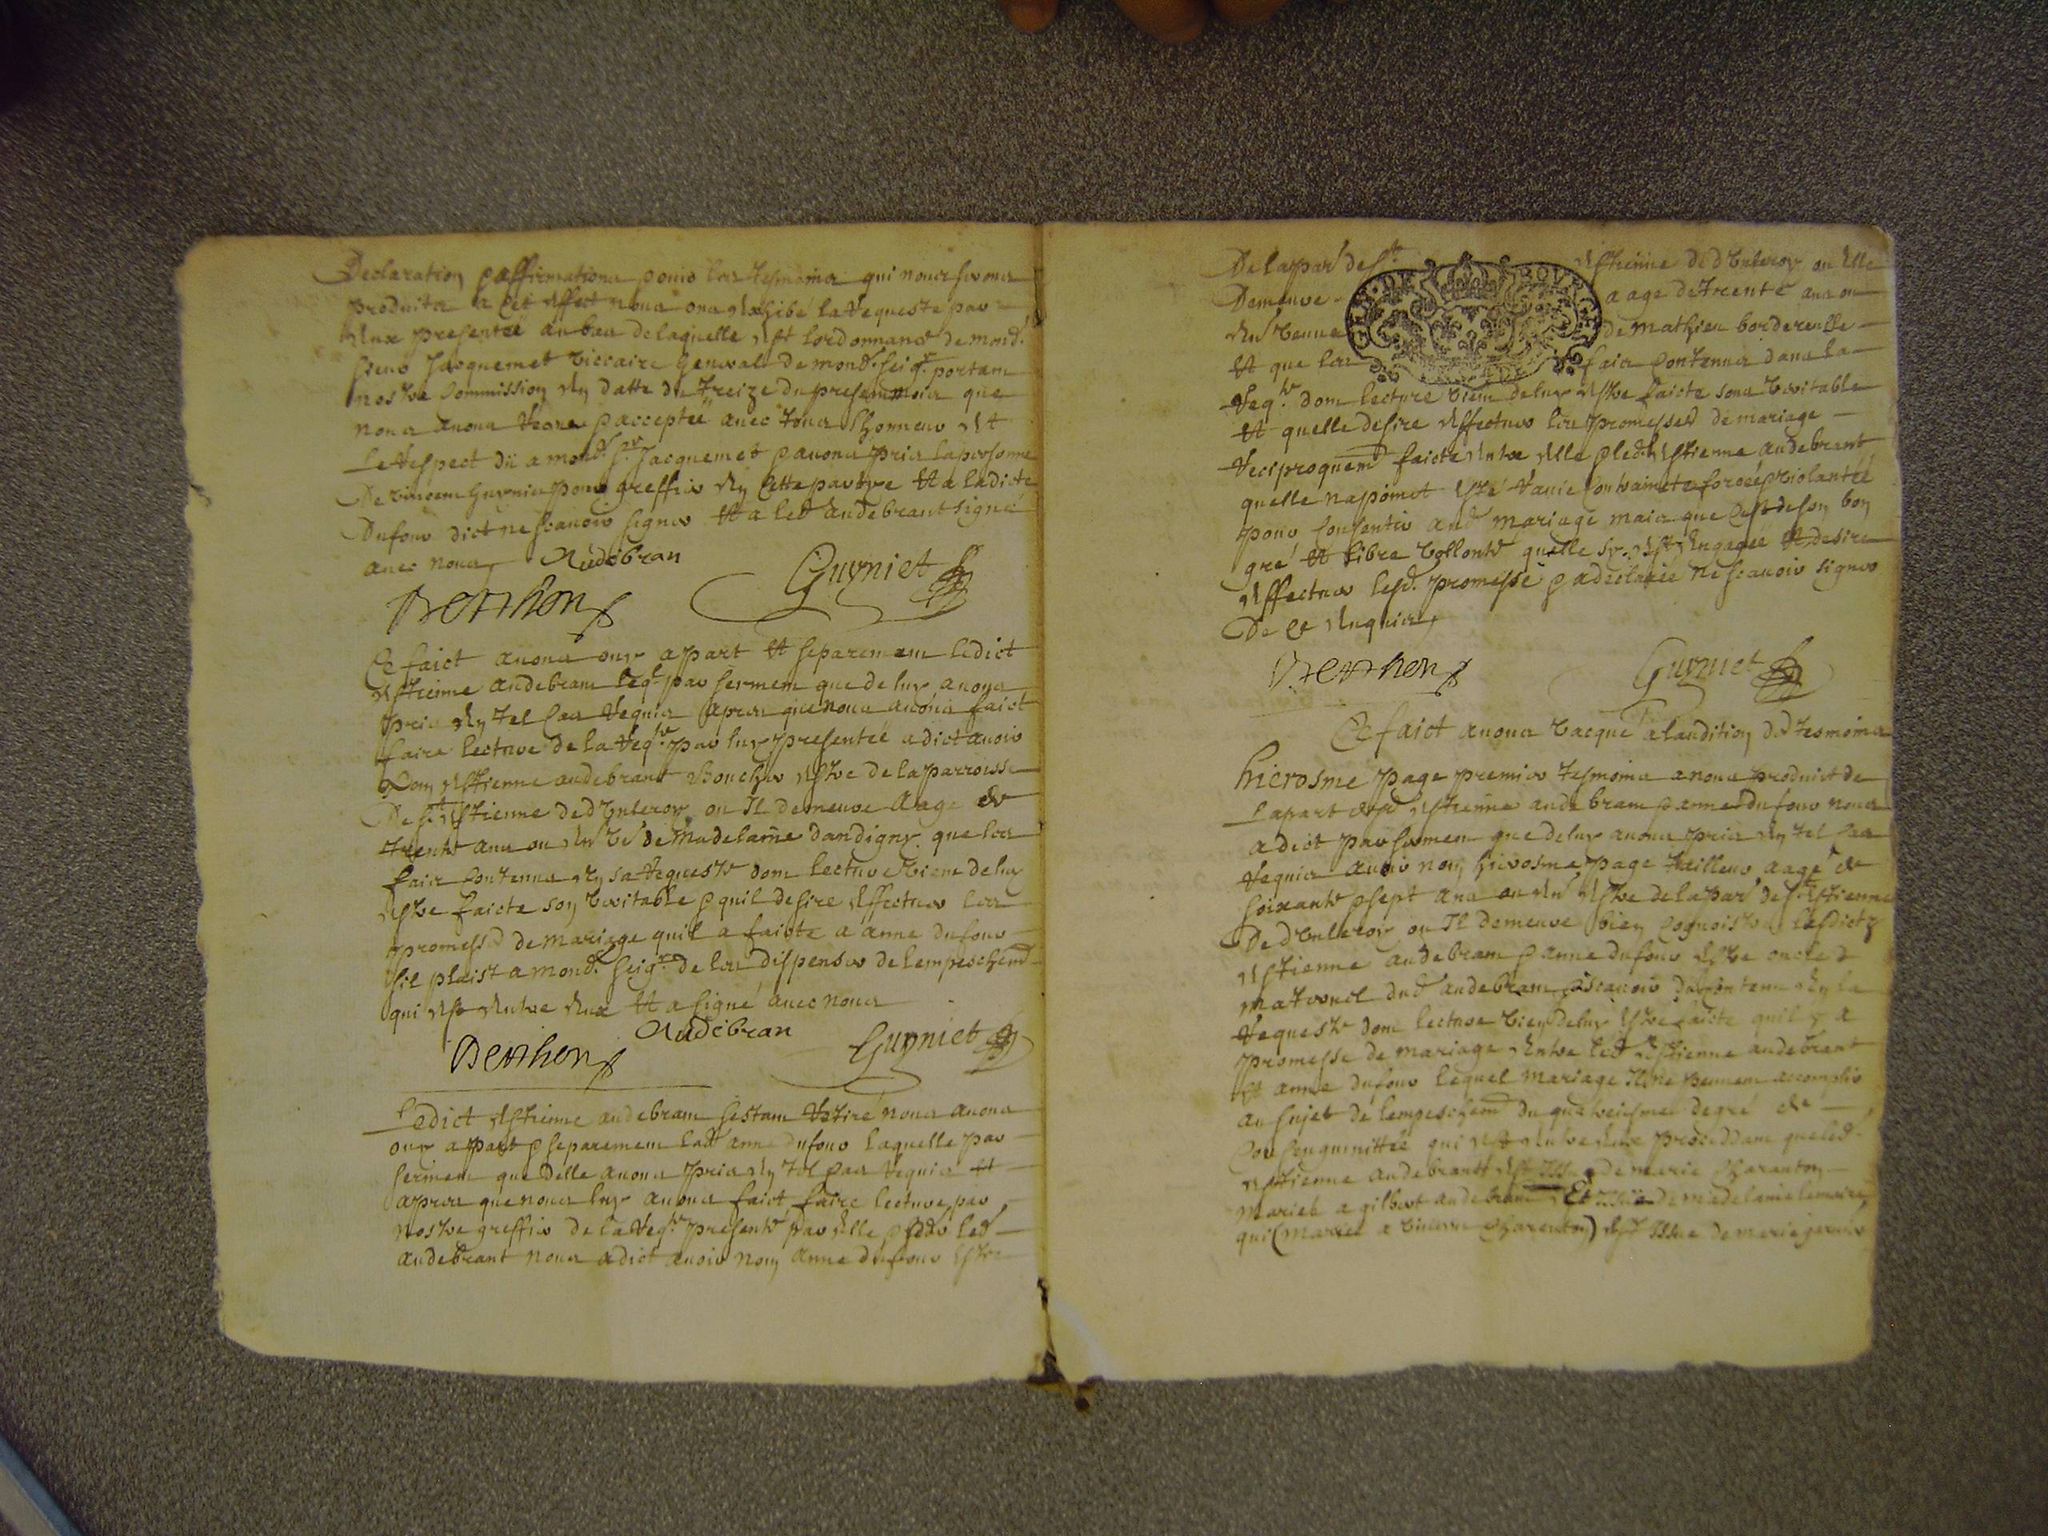 Declaration & affirmations pour les tesmoins qui nous seront
produits a cet effect nous ont exhibé la requeste par
eux presentée au bas de laquelle est lordonnance de mond.
sieur Jacquemet viccaire general de mond. seigr. portant
nostre commission en datte du treize du present mois que
nous avons receue & acceptée avec tous lhonneur et
le respect dû a mond. sr. Jacquemet & avons pris la personne
De vincent Guyniet pour greffier en cette partye et a ladicte
Dufour dict ne scavoir signer et a led audebrant signé
avec nous Audebran
Berthon Guyniet
Ce faict avons ouy a part et separement ledict
estienne audebram leql. par serment que de luy avons
pris en tel cas requis apres que nous avons faict
faire lecture de la reqte. par luy presentée a dict avoir
nom estienne audebrant Boucher estre de la parroisse
De st. estienne de dunleroy ou Il demeure aagé de
trente ans ou env. de Madelaine dandigny que les
faicts contenus en sa requeste dont lecture vient de luy
estre faicte son veritable & quil desire effectuer les
promesses de mariage quil a faicte a anne dufour
sil plaist a mond. seigr. de les dispenser de lempeschemt.
qui est entre eux et a signé avec nous
Audebran
Berthon Guyniet
Ledict estienne audebram sestant retiré nous avons
ouy a part & separement lad. anne dufour laquelle par
serment que delle avons pris en tel cas requis et
apres que nous luy avons faict faire lecture par
nostre greffier de la reqte. presente par elle & led
audebrant nous a dict avoir nom anne dufour estre
De la par. de st. estienne de dunleroy ou elle
Demeure aage de trente ans ou
env. de mathieu
et que les faicts contenus dans la
reqte. dont lecture vient de luy estre faicte sont veritable
et quelle desire effectuer les promesses de mariage
reciproquemt. faicte entre elle & led. estienne audebrant
quelle na point esté ravie contrainte forcée & violantée
pour consentir aud. mariage mais que cest de son bon
gré et libre vollonté quelle sy est engagée et desire
effectuer lesd. promesse & a declarée ne scavoir signer
De ce enquis
Berthon Guyniet
Ce faict avons vacqué a laudition des tesmoins
hierosme page premier tesmoins a nous produict de
la part desd. estienne audebram & anne dufour nous
a dict par serment que de luy avons pris en tel cas
requis avoir nom hierosme page tailleur aagé de
soixante & sept ans ou env. estre de la par. de st. estienne
De dunleroy ou Il demeure bien cognoistre lesdictz
estienne audebram & anne dufour estre oncle
maternel dud. audebram & scavoir du contenu en la
requeste dont lecture vient de luy estre faicte quil y a
promesse de mariage entre led estienne audebrant
et anne dufour lequel mariage Ilz ne peuvent accomplir
au sujet de lempeschemt. du quatreisme degré de
consenguinittée qui est entre eux proceddant que led.
estienne audebrant est issu de marie charanton
mariée a gilbert audebram Et issue de madelaine
qui (mariée a charenton) est issue de marie